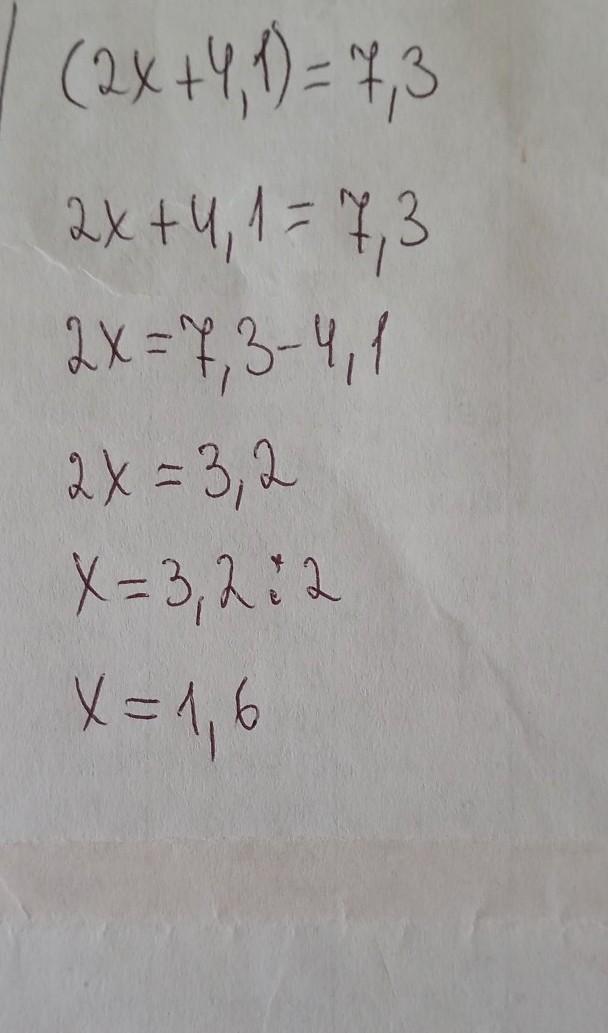 (2x+4,1)=7,3
2x+4,1=7,3
2x=7,3-4,1
2x=3,2
x=3,2:2
x=1,6